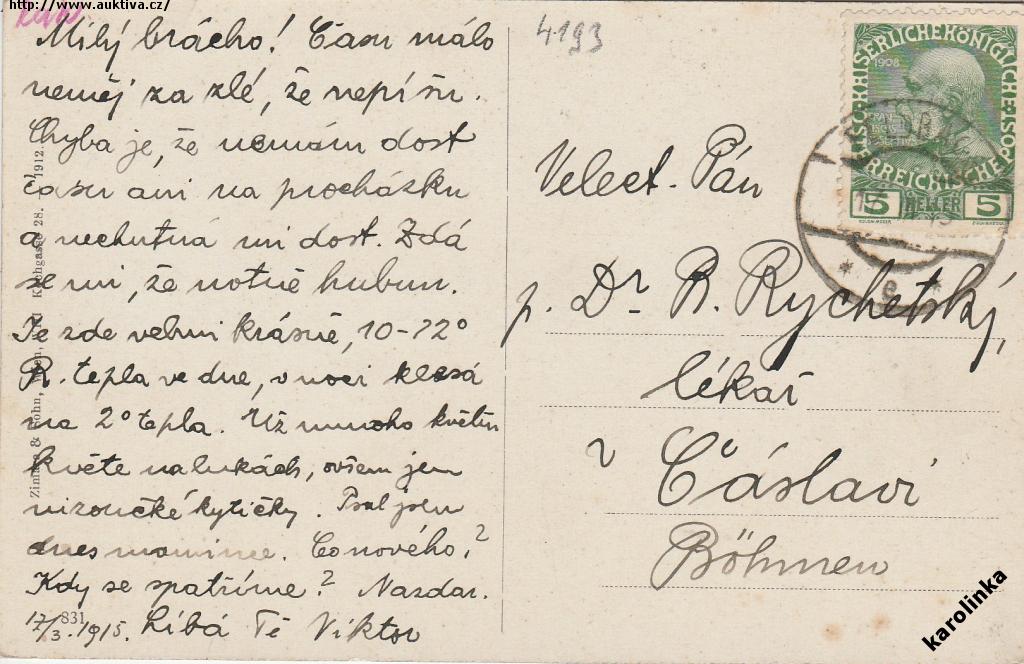 http://www.auktiva.cz/
Milý brácho! Času málo
neměj za zlé, že nepíšu.
Chyba je, že nemám dost
času ani na procházku
a nechutná mi dost. Zdá
se mi, že notně hubnu.
Je zde velmi krásně, 10-12°
R. tepla ve dne, v noci klesá
na 2° tepla. Už mnoho květin
květe na lukách, ovšem jen
nizoučké kytičky. Psal jsem
dnes mamince. Co nového?
Kdy se spatříme? Nazdar.
17/3. 1915. Líbá Tě Viktor
831
Kirchgasse 28. 1912.
4193
Velect. Pán
p. Dr R. Rychetský,
lékař
v Čáslavi
Böhmen
KAISERLICHEKÖNIGLICHE
ÖSTERREICHISCHE POST
1908
5 HELLER 5
* e *
karolinka